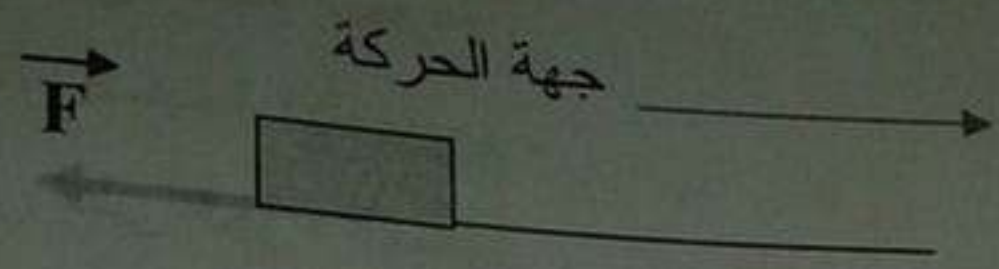 جهة الحركة
F